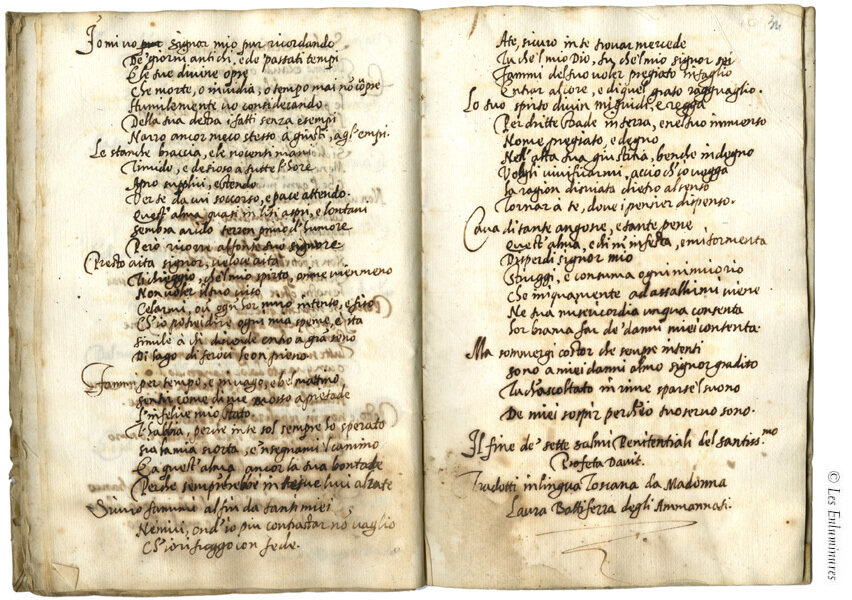 Io mi vo pur signor mio pur ricordando
De' giorni antichi, e de' passati tempi
E le tue divine opre
Che morte, o invidia, o tempo mai nō copre
Humilmente vo considerando
Della tua destra i fatti senza esempi
Narro ancor meco stesso a giusti, a gl'empi.
Le stanche braccia, e le nocenti mani
Timido, e desioso a tutte l'hore
Apro supplice, e stendo
Per te da cui soccorso, e pace attendo.
Quest'alma quasi in lisi aspri, e lontani
Sembra arido terren privo d'humore
Però ricorre al fonte suo signore
Presto aita signor, veloce aita
Ti chieggio, che'l mio spirto, oime vien meno
Non voler il tuo viso
Celarmi, ov' ogn'hor miro intento, e fiso
Ch'io potrei dire ogni mia speme, e ita
Simile à chi discende entro a grā seno
Di lago di feroci
Fammi per tempo, e in vago, e bel mattino
sentir come di me mosso a pietade
l'infelice mio stato
T'habbia, perche in te sol sempre ho sperato
Sia la mia scorta, e insegnami'l camino
E a quest'alma ancor la tua bontade
Perche sempre luci alzate
fammi al fin da tanti miei
Nemici, ond'io piu contrastar nō vaglio
Ch'io rifuggo con fede.
32
A te, sicuro in te trovar mercede
Tu che'l mio Dio, tu che'l mio signor sei
Fammi del tuo voler pregiato intaglio
Entro al core, e di quel grato ragguaglio.
Lo tuo spirto divin mi guide, e regga
Per dritte strade in terra, e nel tuo immenso
Nome pregiato, e degno
Nell'alta tua giustitia, benche indegno
Vogli vivificarmi, accio ch'io vegga
La ragion disviata dietro al senso
Tornar à te, dove i pensier dispenso.
Cava di tante angosce, e tante pene
Quest'alma, e chi m'infesta, e mi tormenta
Disperdi signor mio
Struggi, e consuma ogni nimico rio
Che iniquamente ad assalhirmi viene
Ne tua misericordia unqua contenta
Lor brama far de' danni miei contenta.
Ma sommergi costor che sempre intenti
sono a miei danni almo signor gradito
Tu ch'ascoltato in rime sparse'l suono
De miei sospir perch'io tuo servo sono.
Il fine de' sette salmi Penitentiali del santiss.mo
Profeta Davit.
Tradotti in lingua Toscana da Madonna
Laura Battiferra degli Ammannati.
© Les Enluminures